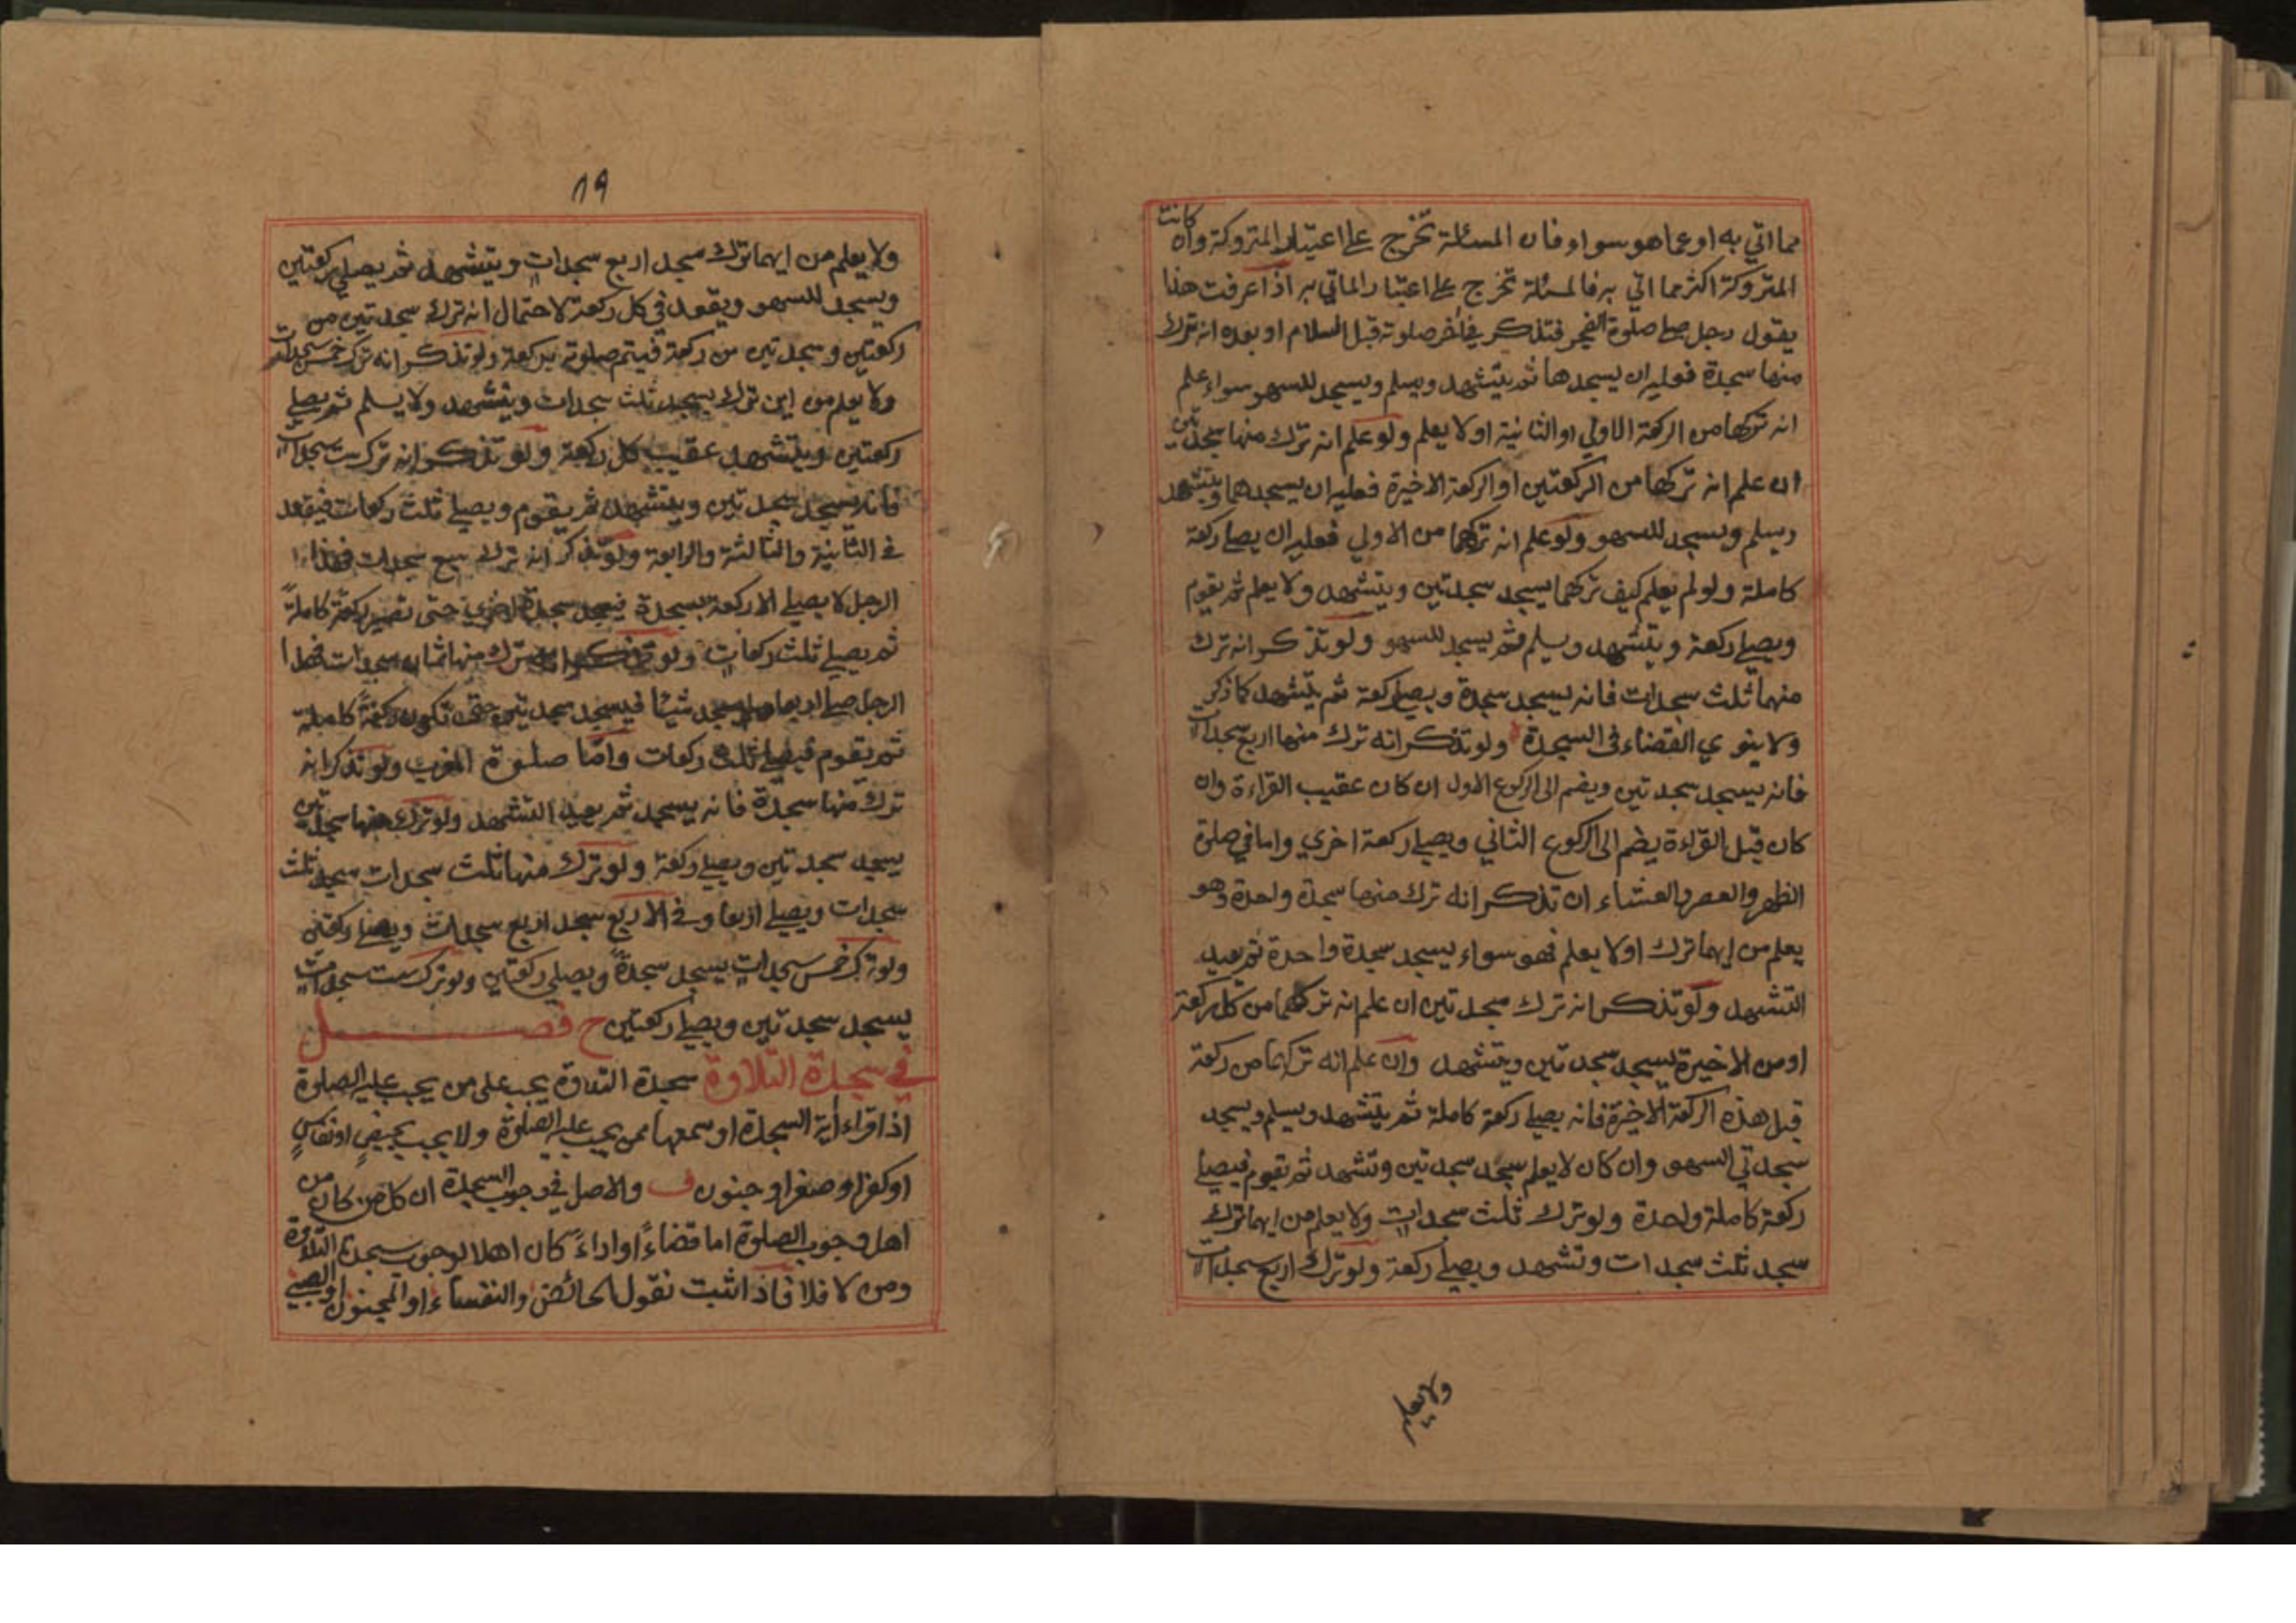 مما اتي به او عما هو سواء فان المسئلة تخرج علے اعتبار المتروكة وان كانت
المتروكة اكثر مما اتي به فالمسئلة تخرج علے اعتبار الماتي به اذا عرفت هذا
يقول رجل صلے صلوة الفجر فتذكر في اٰخر صلوته قبل السلام او بعده انه ترك
منها سجدة فعليه ان يسجدها ثم يتشهد ويسلم ويسجد للسهو سواء علم
انه تركها من الركعة الاولي او الثانية او لا يعلم ولو علم انه ترك منها سجدتين
ان علم انه تركها من الركعتين او الركعة الاخيرة فعليه ان يسجدهما ويتشهد
ويسلم ويسجد للسهو ولو علم انه تركهما من الاولي فعليه ان يصلے ركعة
كاملة ولو لم يعلم كيف تركهما يسجد سجدتين ويتشهد ولا يعلم ثم يقوم
ويصلے ركعة ويتشهد ويسلم ثم يسجد للسهو ولو تذكر انه ترك
منها ثلث سجدات فانه يسجد سجدة ويصلے ركعة ثم يتشهد كما ذكر
ولا ينوي القضاء في السجدة ولو تذكر انه ترك منها اربع سجدات
فانه يسجد سجدتين ويضم الى الركوع الاول ان كان عقيب القراءة وان
كان قبل القراءة يضم الى الركوع الثاني ويصلے ركعة اخري واما في صلوة
الظهر والعصر والعشاء ان تذكر انه ترك منها سجدة واحدة وهو
يعلم من ايهما ترك او لا يعلم فهو سواء يسجد سجدة واحدة ثم يعيد
التشهد ولو تذكر انه ترك سجدتين ان علم انه تركهما من كل ركعة
او من الاخيرة يسجد سجدتين ويتشهد وان علم انه تركهما من ركعة
قبل هذه الركعة الاخيرة فانه يصلے ركعة كاملة ثم يتشهد ويسلم ويسجد
سجدتي السهو وان كان لا يعلم سجد سجدتين وتشهد ثم يقوم فيصلے
ركعة كاملة واحدة ولو ترك ثلث سجدات ولا يعلم من ايهما ترك
سجد ثلث سجدات وتشهد ويصلے ركعة ولو ترك اربع سجدات
ولا يعلم
١٩
ولا يعلم من ايهما ترك سجد اربع سجدات ويتشهد ثم يصلي ركعتين
ويسجد للسهو ويقعد في كل ركعة لاحتمال انه ترك سجدتين من
ركعتين وسجدتين من ركعة فيتم صلوته بركعة ولو تذكر انه ترك خمس سجدات
ولا يعلم من اين ترك يسجد ثلث سجدات ويتشهد ولا يسلم ثم يصلے
ركعتين ويتشهد عقيب كل ركعة ولو تذكر انه ترك ست سجدات
فانه يسجد سجدتين ويتشهد ثم يقوم ويصلے ثلث ركعات فيقعد
في الثانية والثالثة والرابعة ولو تذكر انه ترك سبع سجدات فهذا
الرجل لا يصلے الا ركعة بسجدة فيسجد سجدة اخري حتى تصير ركعة كاملةً
ثم يصلے ثلث ركعات ولو تذكر انه ترك منها ثمان سجدات فهذا
الرجل صلے اربعا ولم يسجد شيئا فيسجد سجدتين حتى تكون ركعةً كاملة
ثم يقوم فيصلے ثلث ركعات وامّا صلوة المغرب ولو تذكر انه
ترك منها سجدة فانه يسجد ثم يعيد التشهد ولو ترك منها سجدتين
يسجد سجدتين ويصلے ركعة ولو ترك منها ثلث سجدات سجد ثلث
سجدات ويصلے اربعا وفي الاربع سجد اربع سجدات ويصلے ركعتين
ولو ترك خمس سجدات يسجد سجدةً ويصلي ركعتين ولو ترك ست سجدات
يسجد سجدتين ويصلے ركعتين ح فصل
في سجدة التلاوة سجدة التلاوة يجب على من يجب عليه الصلوة
اذا قراء اٰية السجدة او سمعها ممن يجب عليه الصلوة ولا يجب بحيضٍ او نفاسٍ
او كفر او صغر او جنون ف والاصل في وجوب السجدة ان كل من كان من
اهل وجوب الصلوة اما قضاءً او اداءً كان اهلا لوجوب سجدة التلاوة
ومن لا فلا فاذا ثبت نقول الحائض والنفساء او المجنون او الصبي